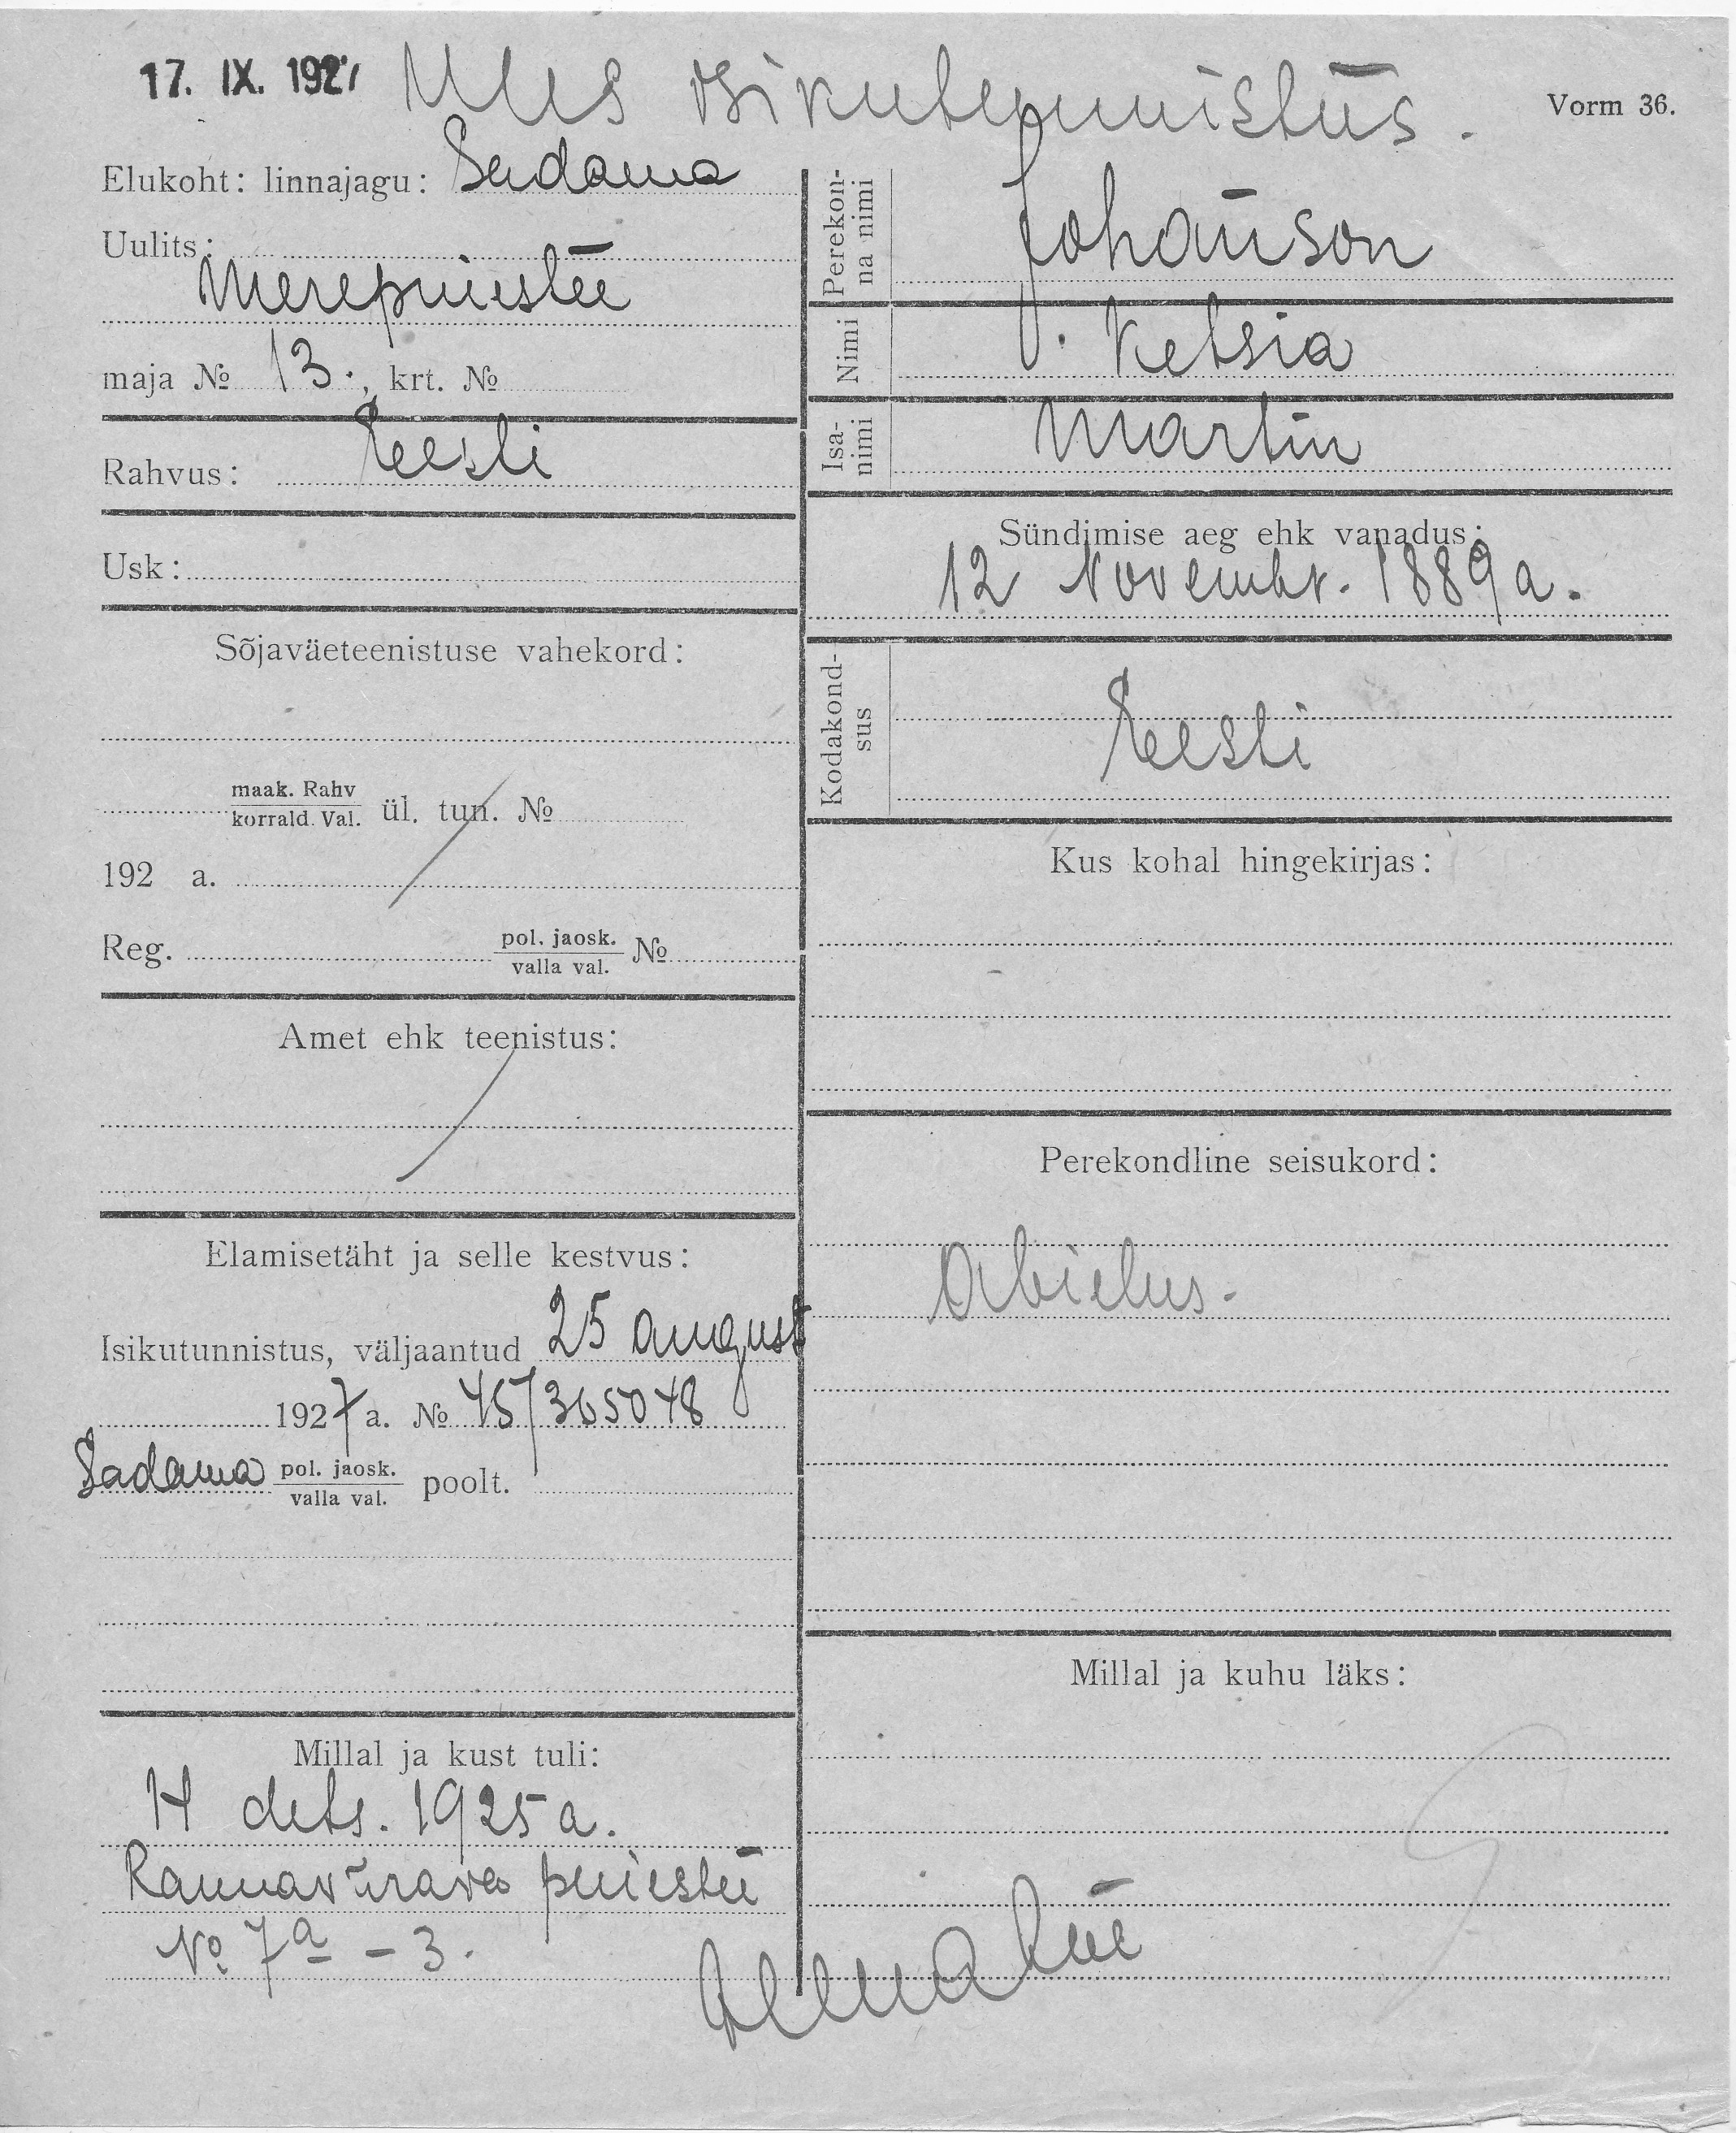 17. IX. 1927
Uus isikutunnistus.
Vorm 36.
Elukoht: linnajagu: Sadama
Uulits:
Merepuiestee
maja № 13., krt. №
Rahvus: Eesti
Usk:
Sõjaväeteenistuse vahekord:
maak. Rahv
korrald. Val. ül. tun. №
192 a.
Reg. pol. jaosk. №
valla val.
Amet ehk teenistus:
Elamisetäht ja selle kestvus:
Isikutunnistus, väljaantud 25 august
1927 a. № 45/365048
Sadama pol. jaosk. poolt.
valla val.
Millal ja kust tuli:
dets. 1925 a.
Rannavärava puiestee
№ 7a - 3.
Perekon-
na nimi
Johanson
Nimi
Ketsia
Isa-
nimi
Martin
Sündimise aeg ehk vanadus:
12 Novembr. 1889 a.
Kodakond-
sus
Eesti
Kus kohal hingekirjas:
Perekondline seisukord:
Abielus.
Millal ja kuhu läks: